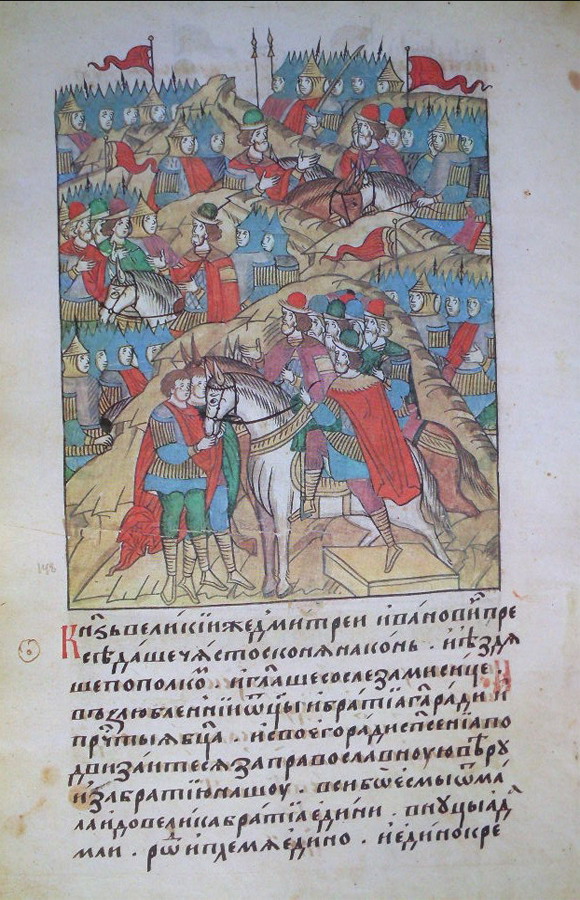 Кн҃зьвеликїижедмитреи ивановичпре
сѣдашечястосконянаконь . иѣздя
шепополкѡ . иг҃лашесослезамисице
възлюбленнїиѿцыибратїагд҃аради и
пр҃чтыяб҃ца исвоегорадисп҃сенїапо
двизаитесязаправославноуювѣру
изабратїюнашоу . всибоесмыѿма
лаидовеликабратїаедини . внуцыад
ами . роѿиплемяедино . иединокре
148